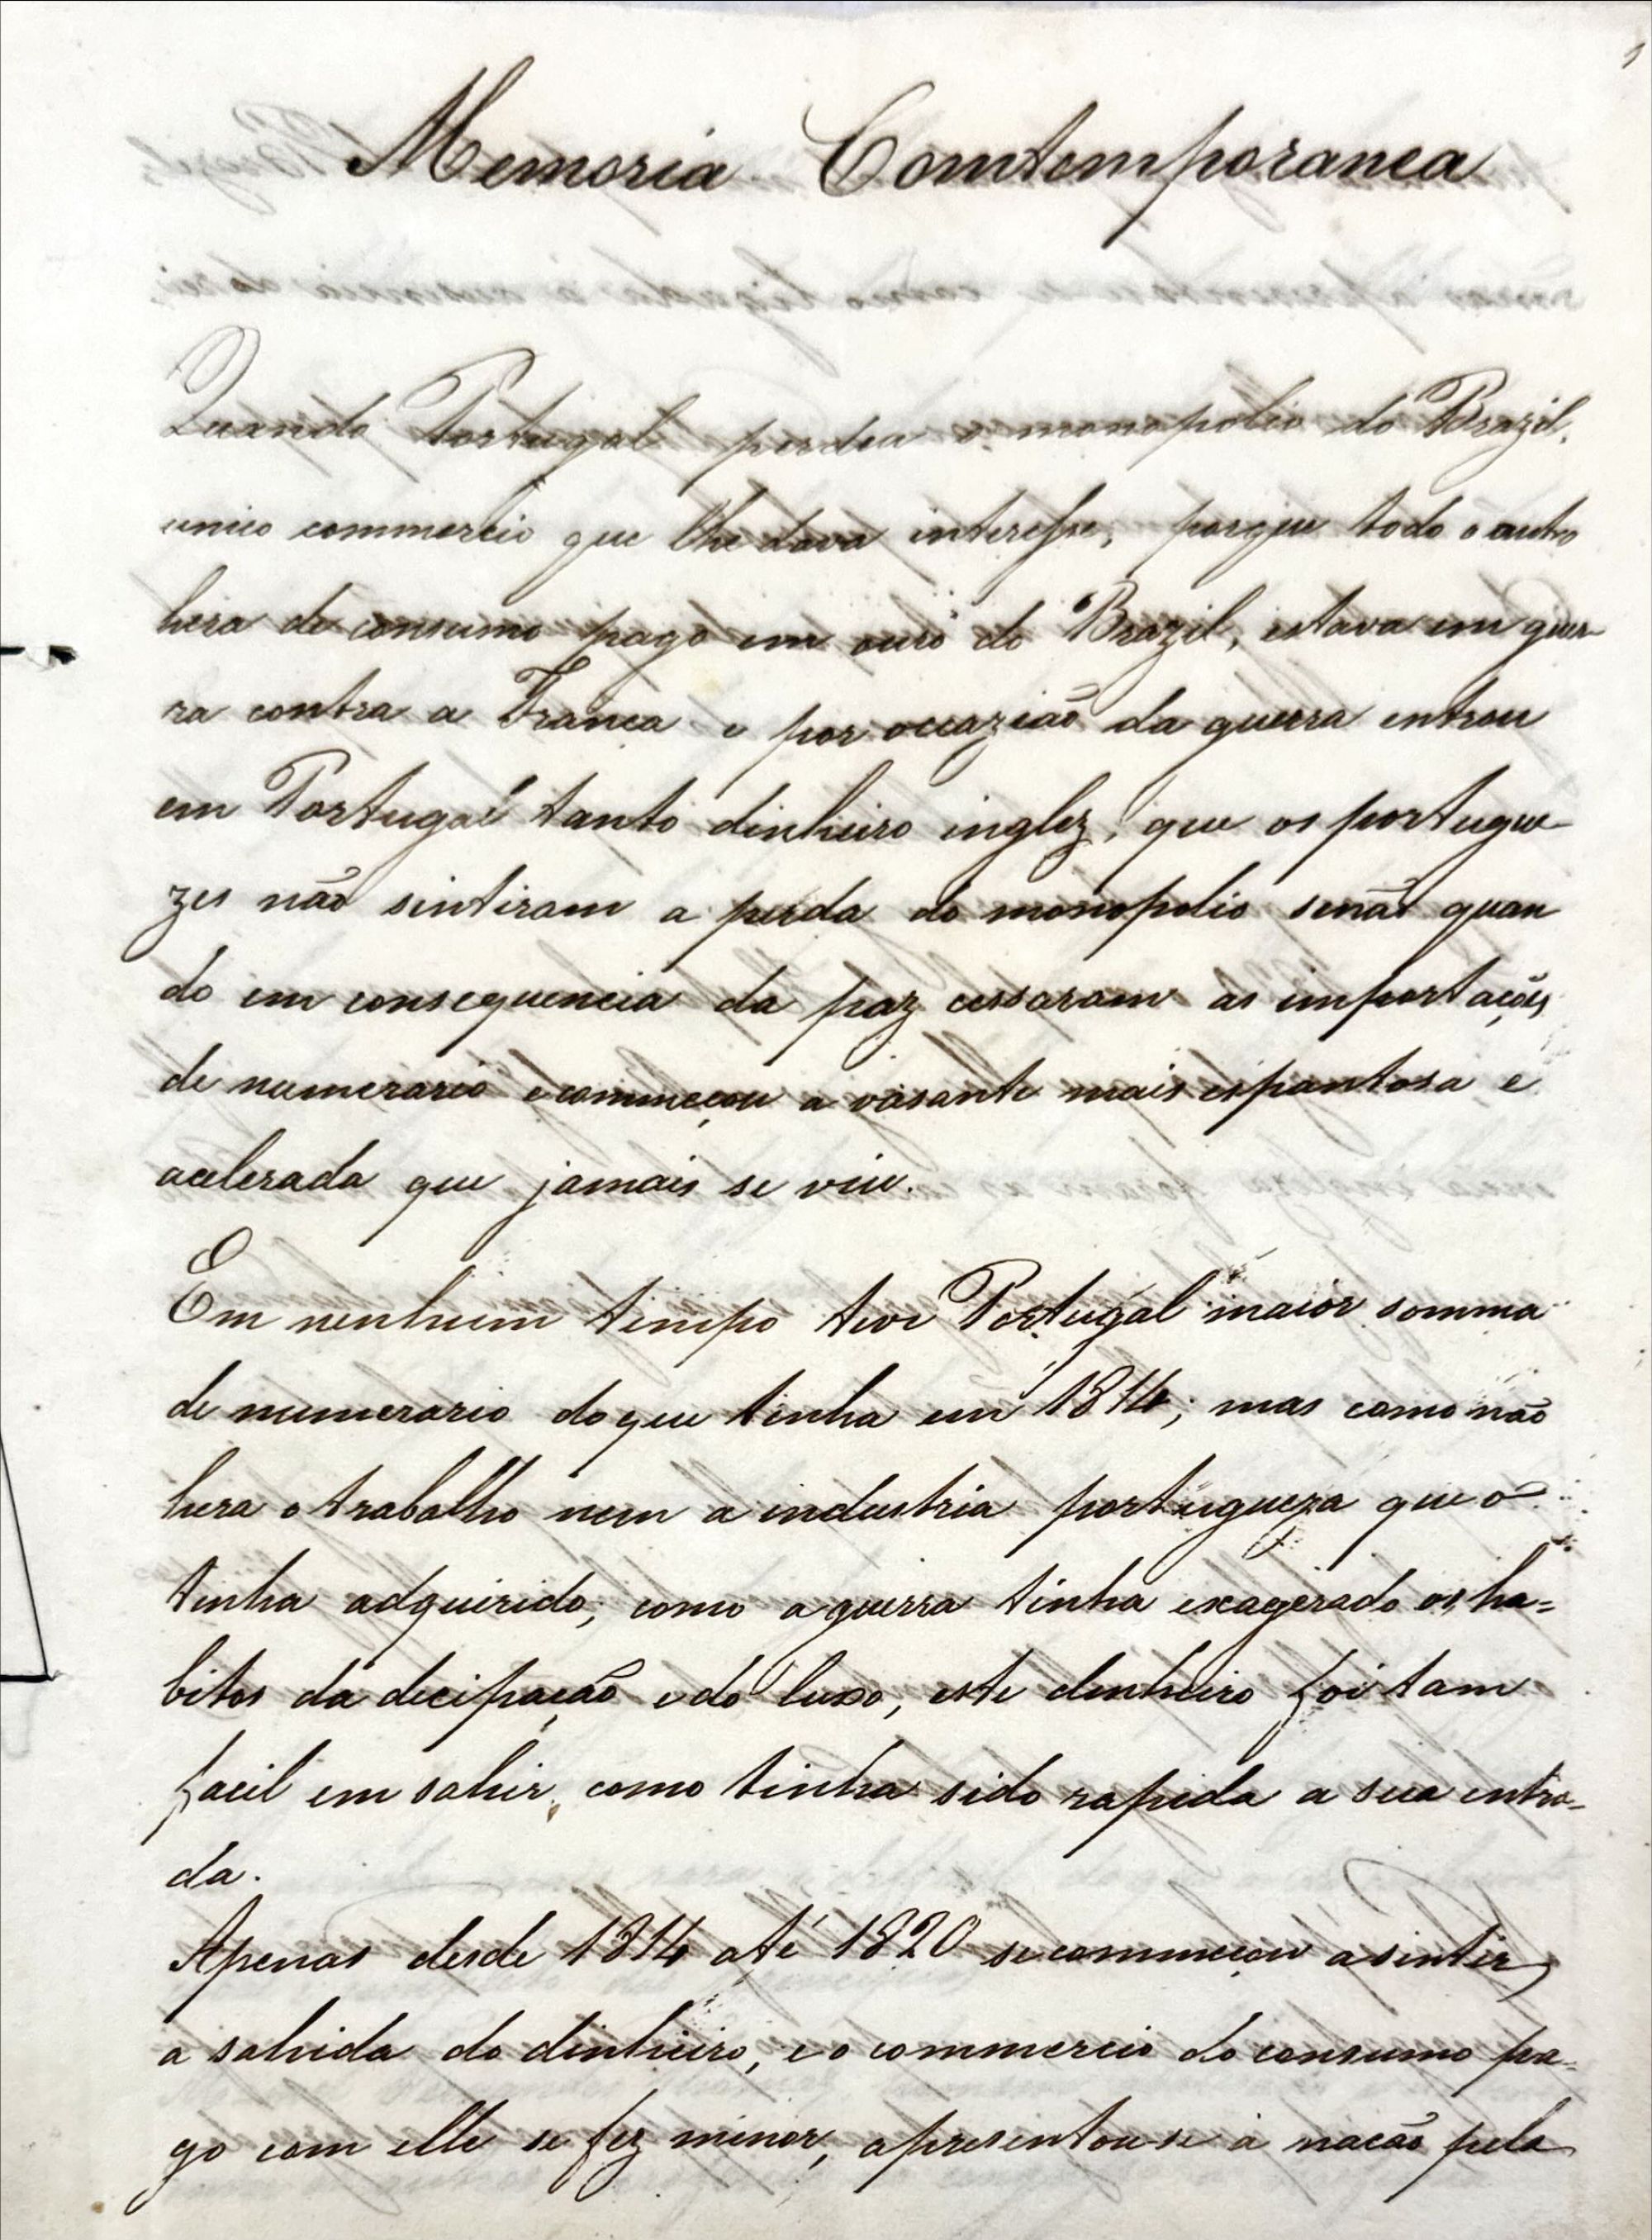 1
Memoria Comtemporanea
Quando Portugal perdeu o monopolio do Brazil,
unico commercio que lhe dava interesse, porque todo o outro
hera de consumo pago em ouro do Brazil, estava em guer-
ra contra a França e por occazião da guerra entrou
em Portugal tanto dinheiro inglez, que os portugue-
zes não sintiram a perda do monopolio senão quan
do em consequencia da paz cessaram as importações
de numerario e commeçou a vasante mais espantosa e
acelerada que jamais se viu.
Em nenhum tempo teve Portugal maior somma
de numerario do que tinha em 1814; mas como não
hera o trabalho nem a industria portugueza que o
tinha adquirido, como a guerra tinha exagerado os ha=
bitos da decipação e do luxo, este dinheiro foi tam
facil em sahir, como tinha sido rapida a sua entra-
da.
Apenas desde 1814 até 1820 se commeçou a sintir
a sahida do dinheiro, e o commercio do consumo pa-
go com elle se fez minor, apresentou se á nação pela